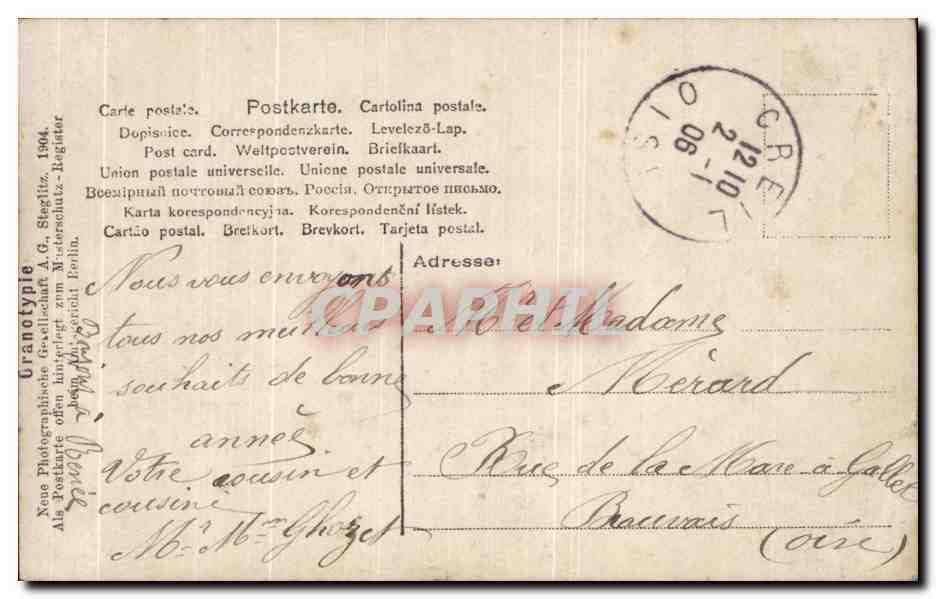 Carte postale. Postkarte. Cartolina postale.
Dopisnice. Correspondenzkarte. Levelező-Lap.
Post card. Weltpostverein. Briefkaart.
Union postale universelle. Unione postale universale.
Всемірный почтовый союзъ. Россія. Открытое письмо.
Karta korespondencyjna. Korespondenční lístek.
Cartão postal. Brefkort. Brevkort. Tarjeta postal.
CREIL
OISE
12 10
2 - 1
06
Nous vous envoyons
tous nos meilleurs
souhaits de bonne
année
Votre cousin et
cousine
Mr Mme
Adresse:
Mr et Madame
Mérard
Rue de la Mare à Gallet
Beauvais
(oise)
Granotypie
Neue Photographische Gesellschaft A.G., Steglitz. 1904.
Als Postkarte offen hinterlegt zum Musterschutz-Register
beim Amtsgericht Berlin.
à Renée
CPAPHIL